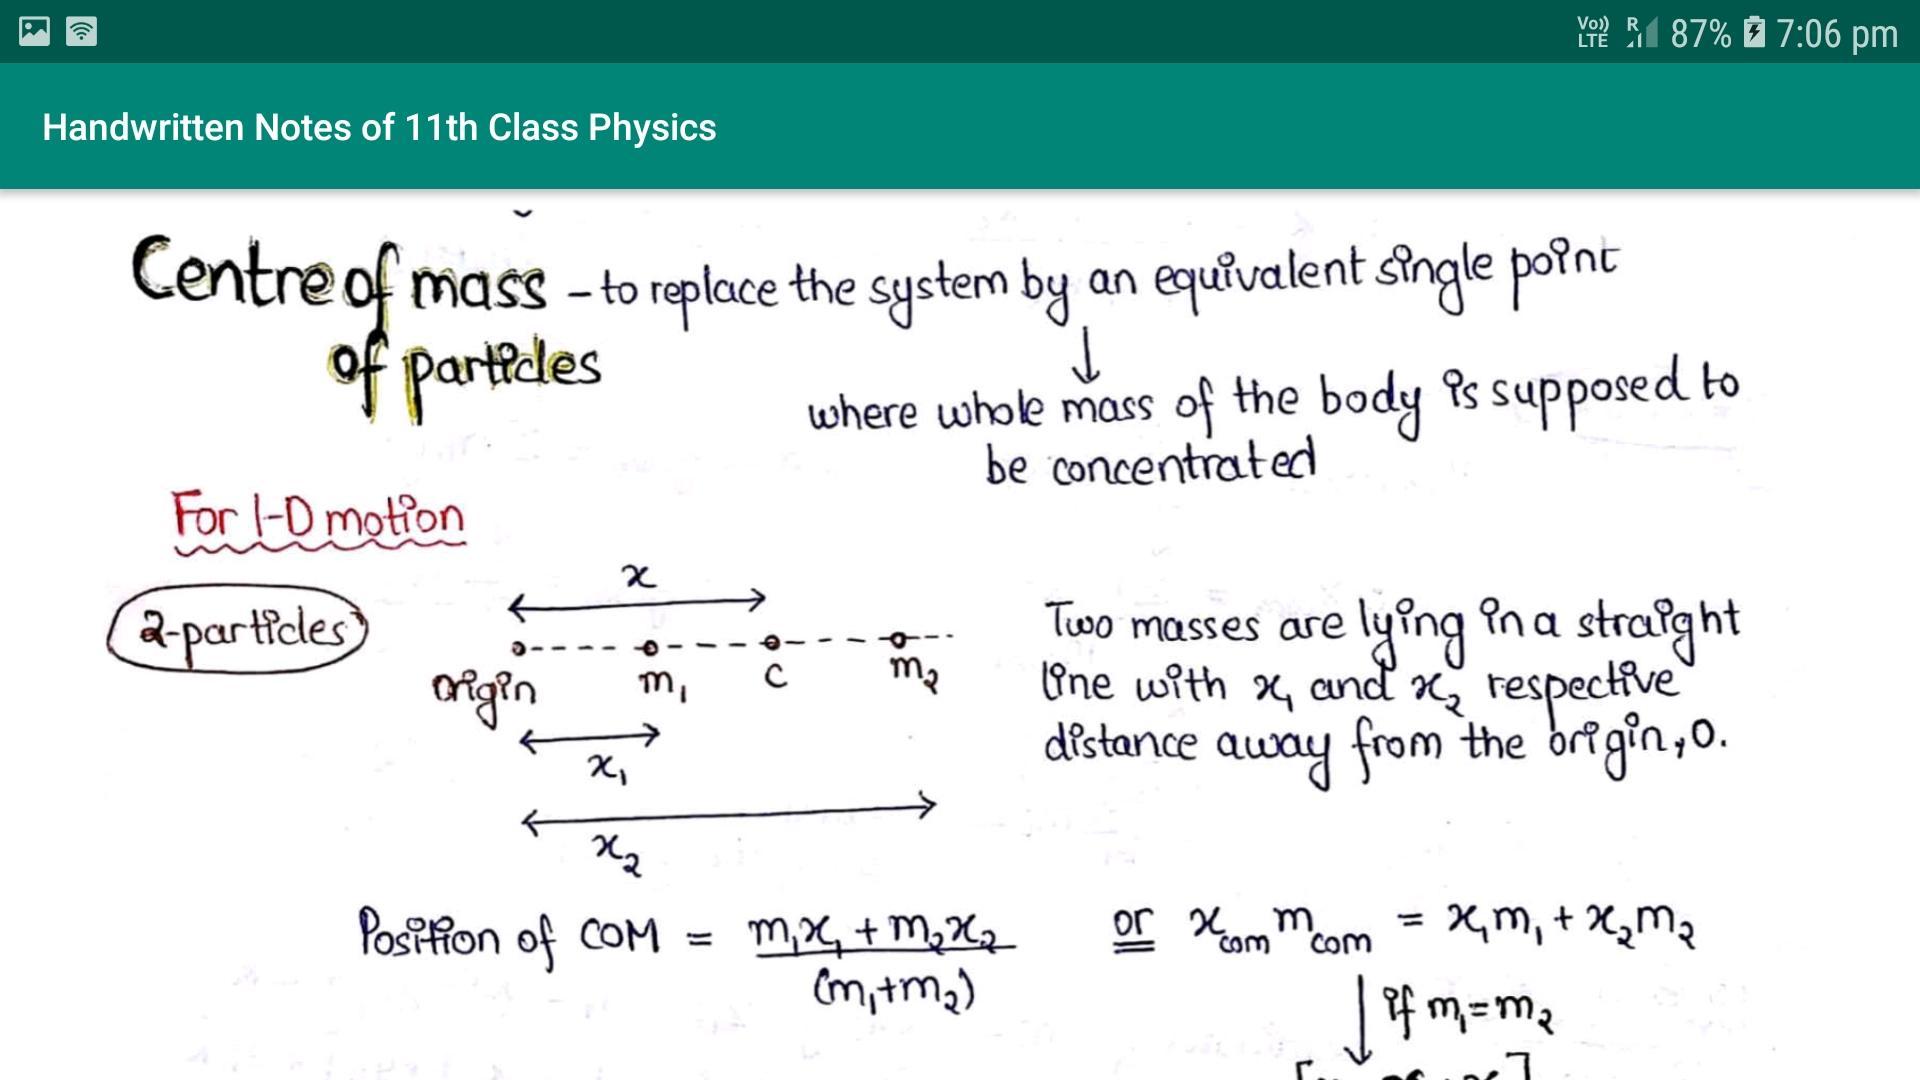 Vo)) LTE R 87% 7:06 pm
Handwritten Notes of 11th Class Physics
Centre of mass – to replace the system by an equivalent single point
of particles
↓
where whole mass of the body is supposed to
be concentrated
For 1-D motion
2-particles
x
origin m₁ c m₂
x₁
x₂
Two masses are lying in a straight
line with x₁ and x₂ respective
distance away from the origin, 0.
Position of COM = m₁x₁ + m₂x₂ / (m₁+m₂)
or x_com m_com = x₁m₁ + x₂m₂
↓ if m₁=m₂